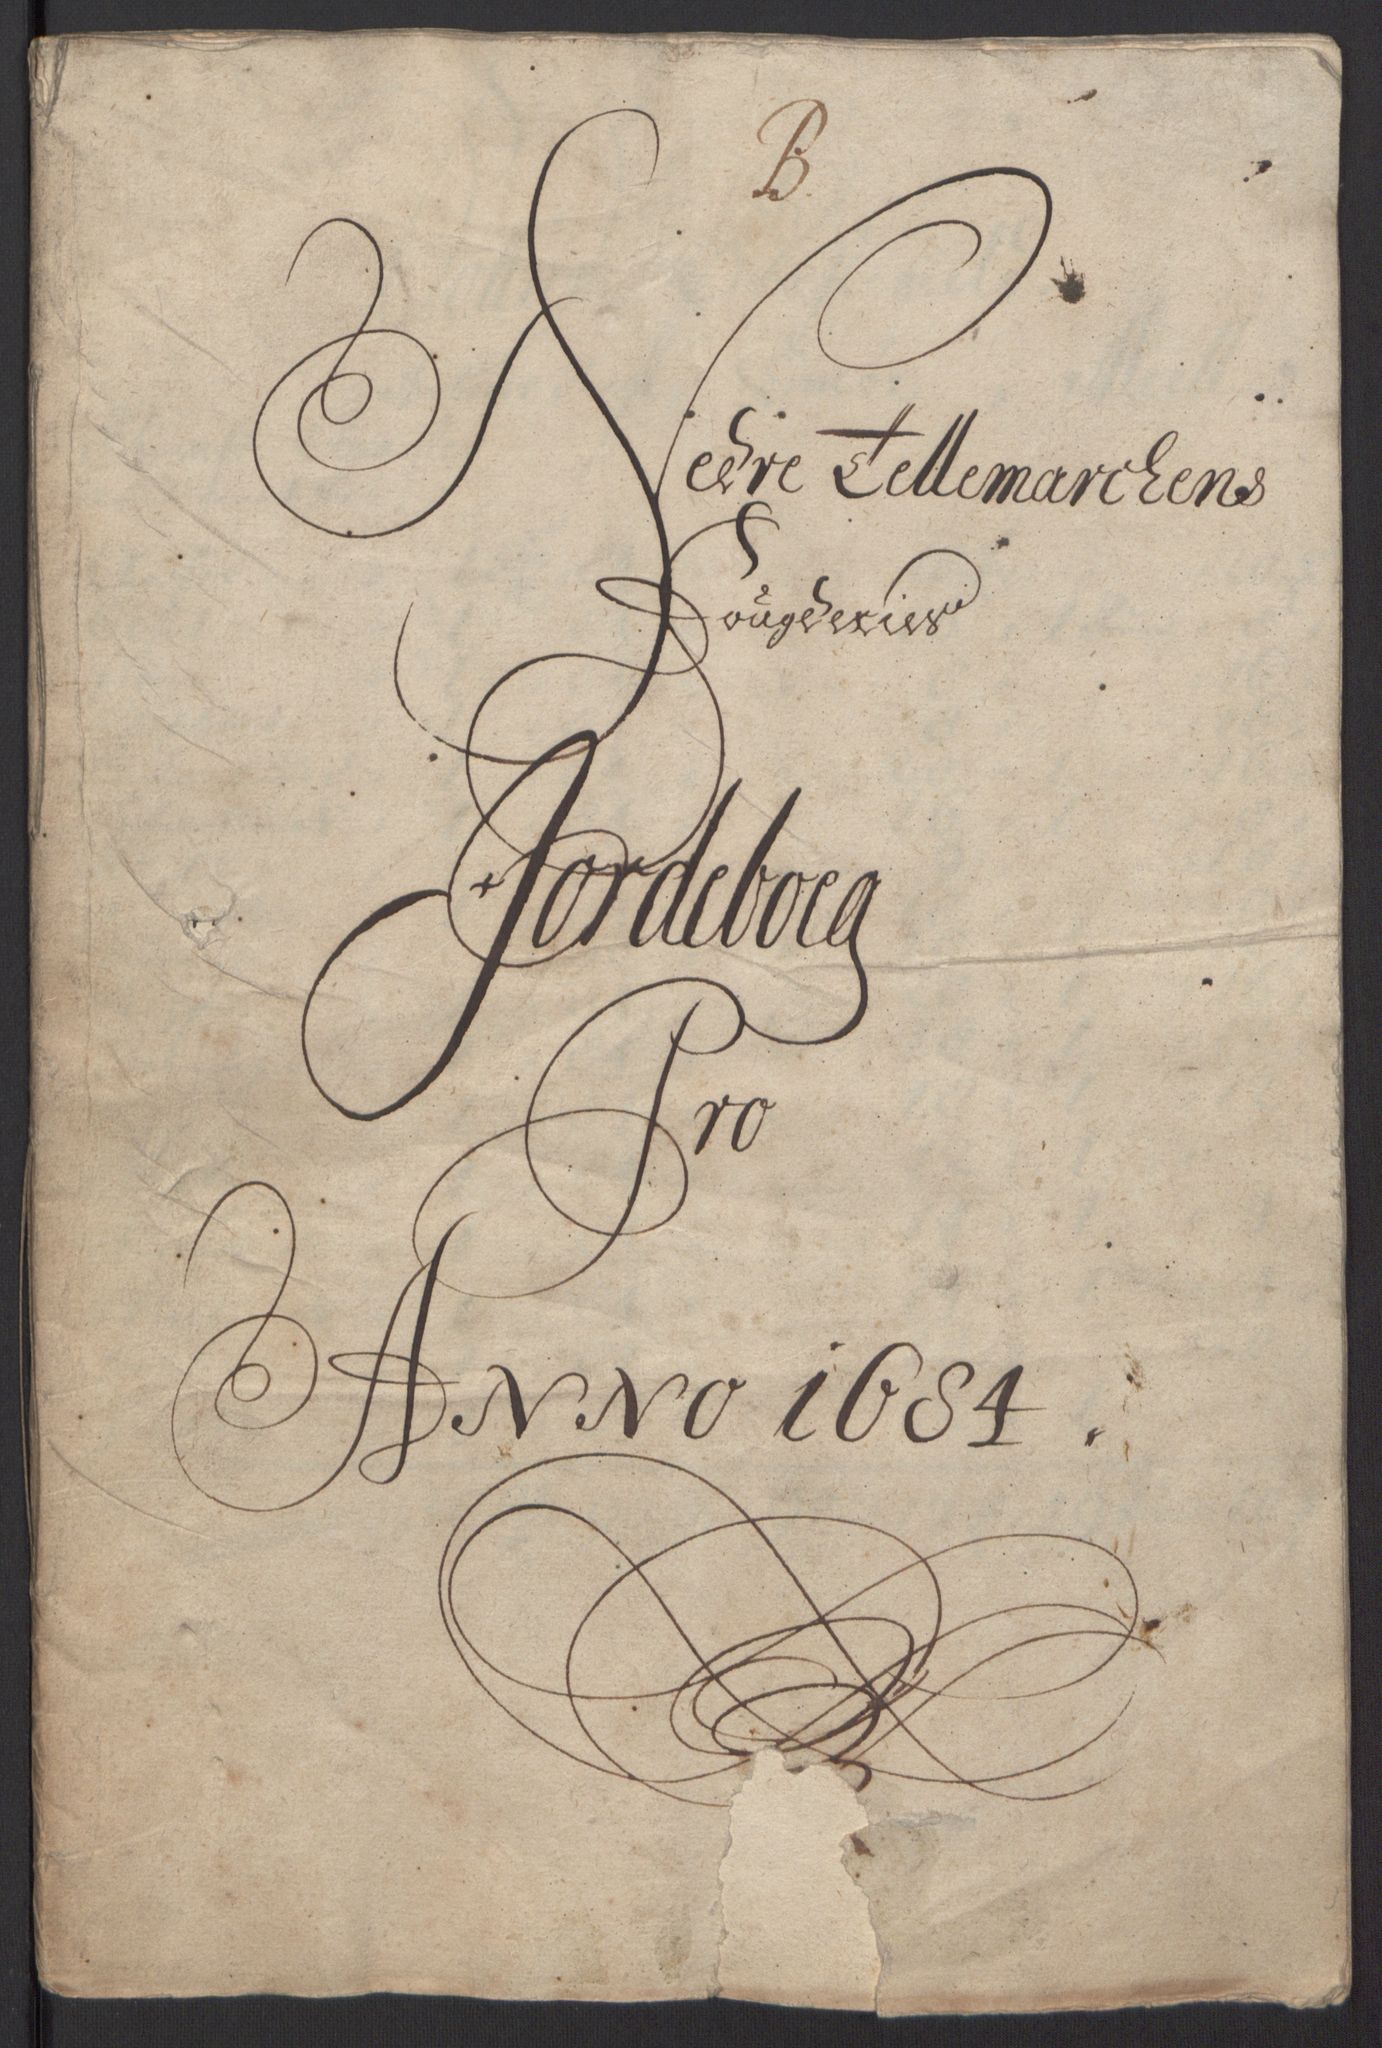 B.
Nedre Tellemarckens
Fougderies
Jordeboeg
Pro
Anno 1684.